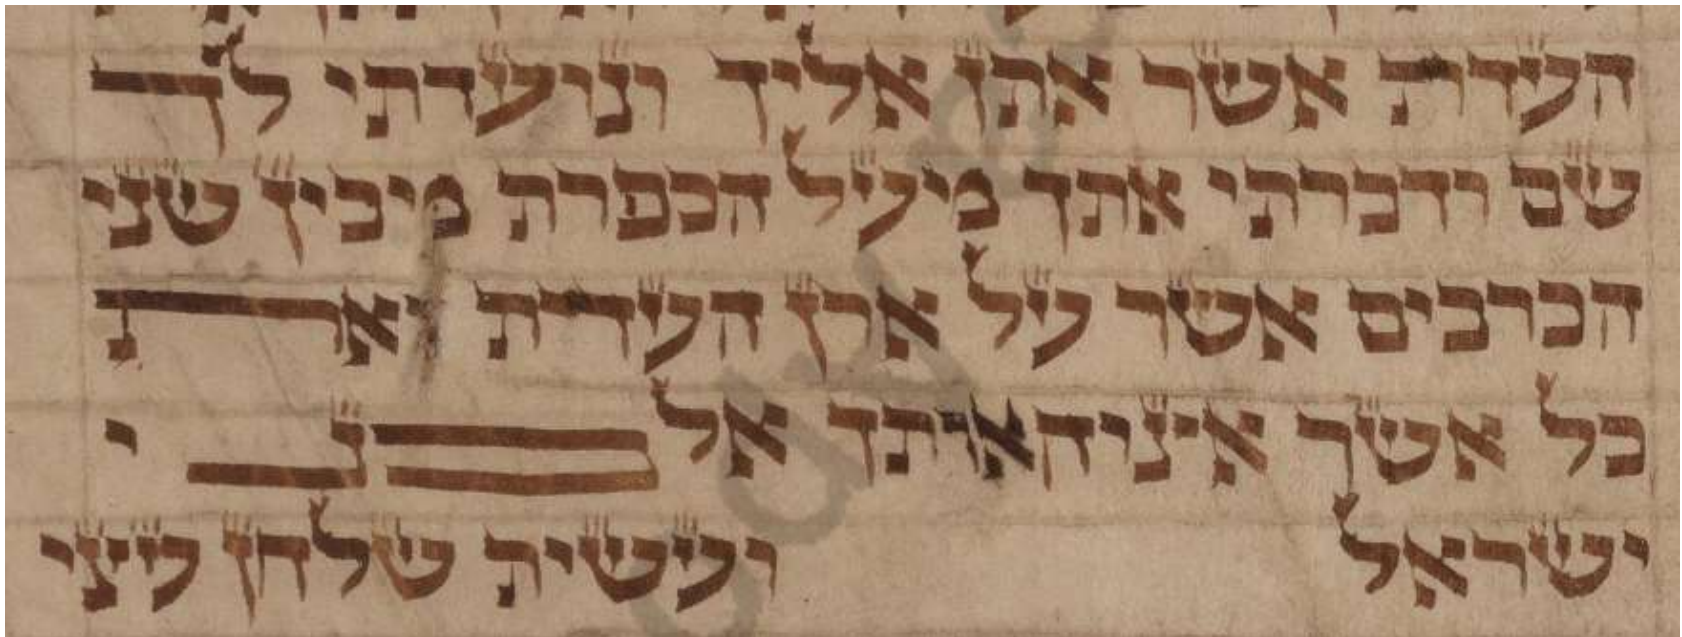 העדות אשר אתן אליך ונועדתי לך
שם ודברתי אתך מעל הכפרת מבין שני
הכרבים אשר על ארן העדות ואת
כל אשר אצוה אותך אל בני
ישראל ועשית שלחן עצי